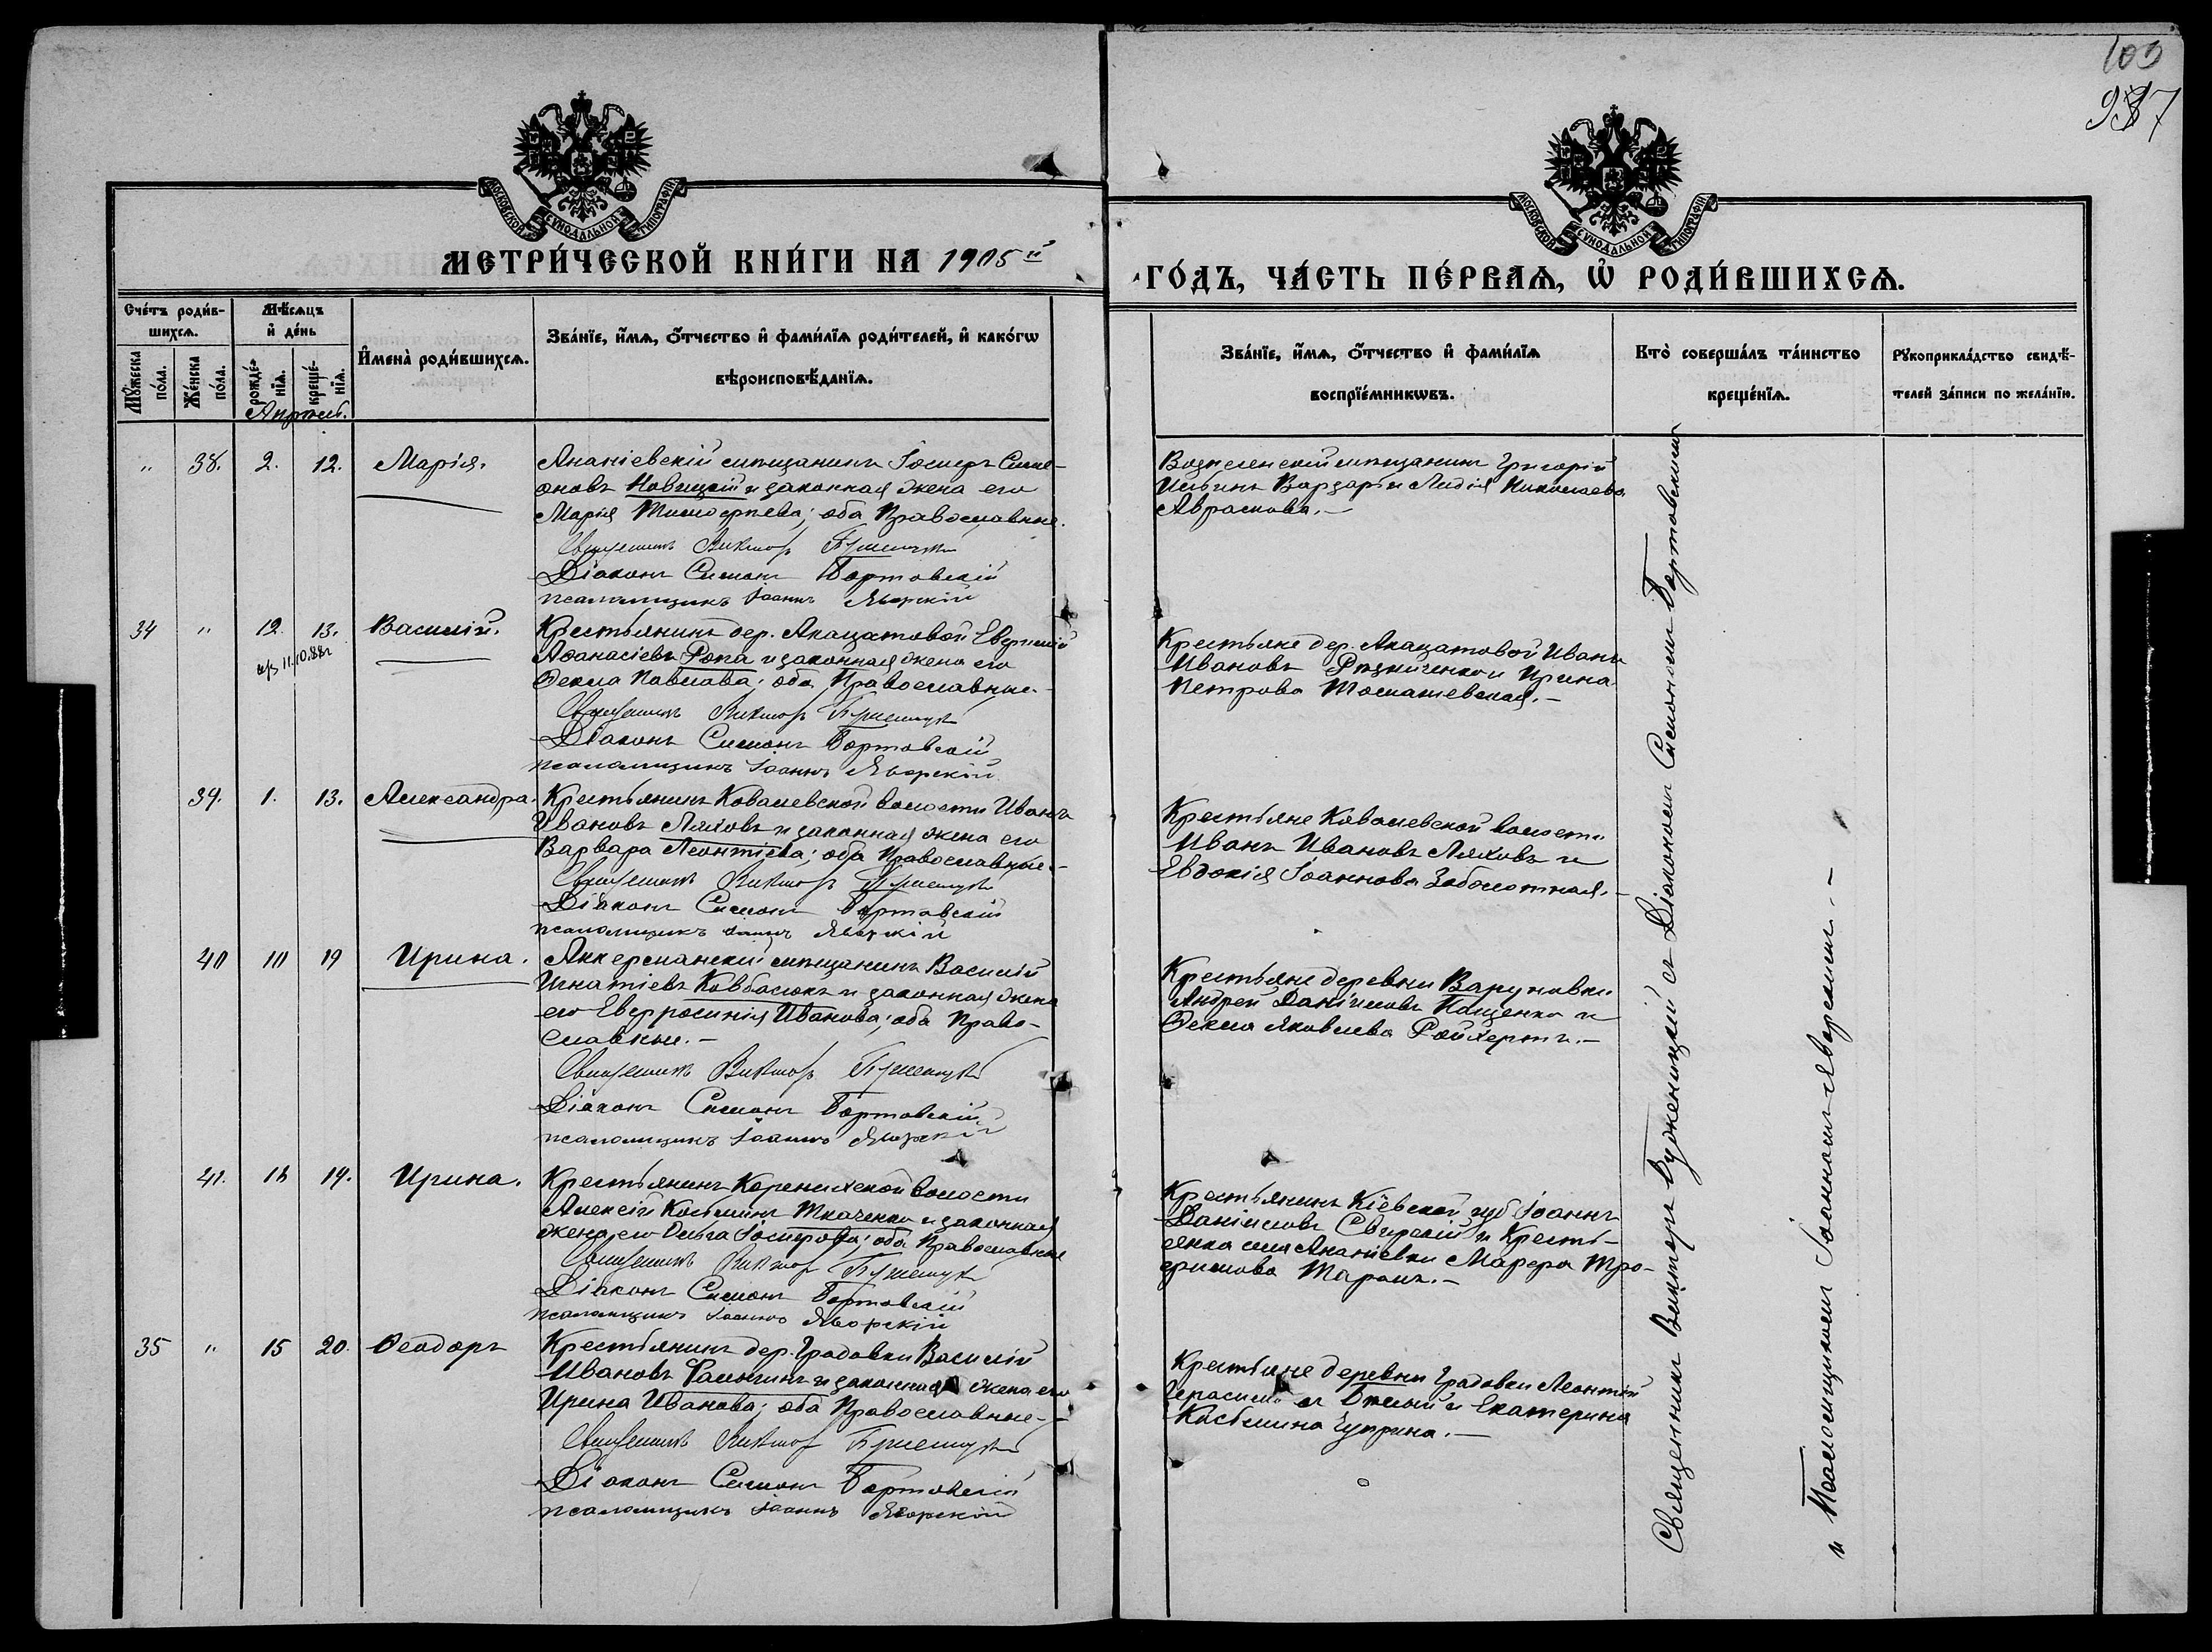 100
937
МОСКОВСКОЙ СѴНОДАЛЬНОЙ ТИПОГРАФІИ
МОСКОВСКОЙ СѴНОДАЛЬНОЙ ТИПОГРАФІИ
МЕТРИ́ЧЕСКОЙ КНИ́ГИ НА 1905й
ГО́ДЪ, ЧА́СТЬ ПЕ́РВАѦ, Ѡ҆ РОДИ́ВШИХСѦ.
Сче́тъ роди́в-
шихсѧ.
Мꙋ́жеска
по́ла.
Же́нска
по́ла.
Мѣ́сѧцъ
и҆ де́нь
рожде́-
нїѧ.
креще́-
нїѧ.
Апрѣль.
И҆мена̀ роди́вшихсѧ.
Зва́нїе, и҆́мѧ, ѻ҆́тчество и҆ фами́лїѧ роди́телей, и҆ како́гѡ
вѣроисповѣ́данїѧ.
Зва́нїе, и҆́мѧ, ѻ҆́тчество и҆ фами́лїѧ
воспрїе́мникѡвъ.
Кто̀ соверша́лъ та́инство
креще́нїѧ.
Рꙋкоприкла́дство свидѣ́-
телей за́писи по жела́нїю.
" 38. 2. 12. Марія.
Ананіевскій мѣщанинъ Іосифъ Симе-
оновъ Новицкій и законная жена его
Марія Тимофѣева; оба Православные.
Священникъ Викторъ
Діаконъ Симонъ Бортовскій
псаломщикъ Іоаннъ Яворскій
Вознесенскій мѣщанинъ Григорій
Ильинъ Варзарь и Лидія Николаева
Абрамова.—
34 " 12. 13. Василій.
Крестьянинъ дер. Акацатовой Евфимій
Афанасіевъ Рѣпа и законная жена его
Ѳекла Павлова; оба Православные.-
Священникъ Викторъ
Діаконъ Симонъ Бортовскій
псаломщикъ Іоаннъ Яворскій
Крестьяне дер. Акацатовой Иванъ
Ивановъ и Ирина
Петрова Томашевская.—
39. 1. 13. Александра.
Крестьянинъ Ковалевской волости Иванъ
Ивановъ Ляховъ и законная жена его
Варвара Леонтіева; оба Православные.-
Священникъ Викторъ
Діаконъ Симонъ Бортовскій
псаломщикъ Іоаннъ Яворскій
Крестьяне Ковалевской волости
Иванъ Ивановъ Ляховъ и
Евдокія Іоаннова Заболотная.—
40 10 19 Ирина.
Аккерманскій мѣщанинъ Василій
Игнатіевъ Ковбасюкъ и законная жена
его Евфросинія Иванова; оба Право-
славные.—
Священникъ Викторъ
Діаконъ Симонъ Бортовскій
псаломщикъ Іоаннъ Яворскій
Крестьяне деревни Варуновки
Андрей Даніиловъ Пащенко и
Ѳекла Яковлева Ройхертъ.—
41. 19. Ирина.
Крестьянинъ волости
Алексій Косьминъ Ткаченко и законная
жена его Ольга Іосифова; оба Православные
Священникъ Викторъ
Діаконъ Симонъ Бортовскій
псаломщикъ Іоаннъ Яворскій
Крестьянинъ Кіевской губ Іоаннъ
Даніиловъ Свирскій и Кресть-
янка села Ананіевки Марфа Тро-
фимова Таранъ.—
35 " 15 20. Ѳеодоръ
Крестьянинъ дер. Градовки Василій
Ивановъ и законная жена его
Ирина Иванова; оба Православные.-
Священникъ Викторъ
Діаконъ Симонъ Бортовскій
псаломщикъ Іоаннъ Яворскій
Крестьяне деревни Градовки Леонтій
Бѣлый и Екатерина
Косьмина Чуприна.—
Священникъ Викторъ съ Діакономъ Симономъ Бортовскимъ
и Псаломщикомъ Іоанномъ Яворскимъ.—